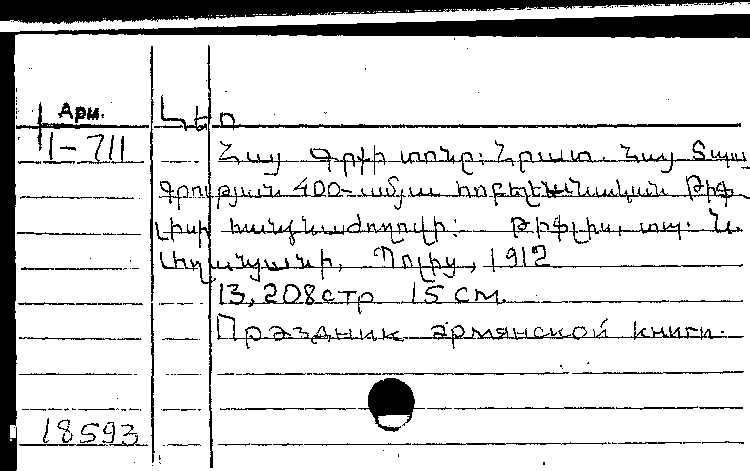 Арм. Լեո
II-711 Հայ Գրքի տոնը: Հրատ. Հայ Տպա
գրության 400-ամյա հոբելեանական Թիֆ-
լիսի հանձնաժողովի: Թիֆլիս, տպ. Ն.
Աղանյանի, Պոլից, 1912
13, 208 стр 15 см.
Праздник армянской книги.
18593